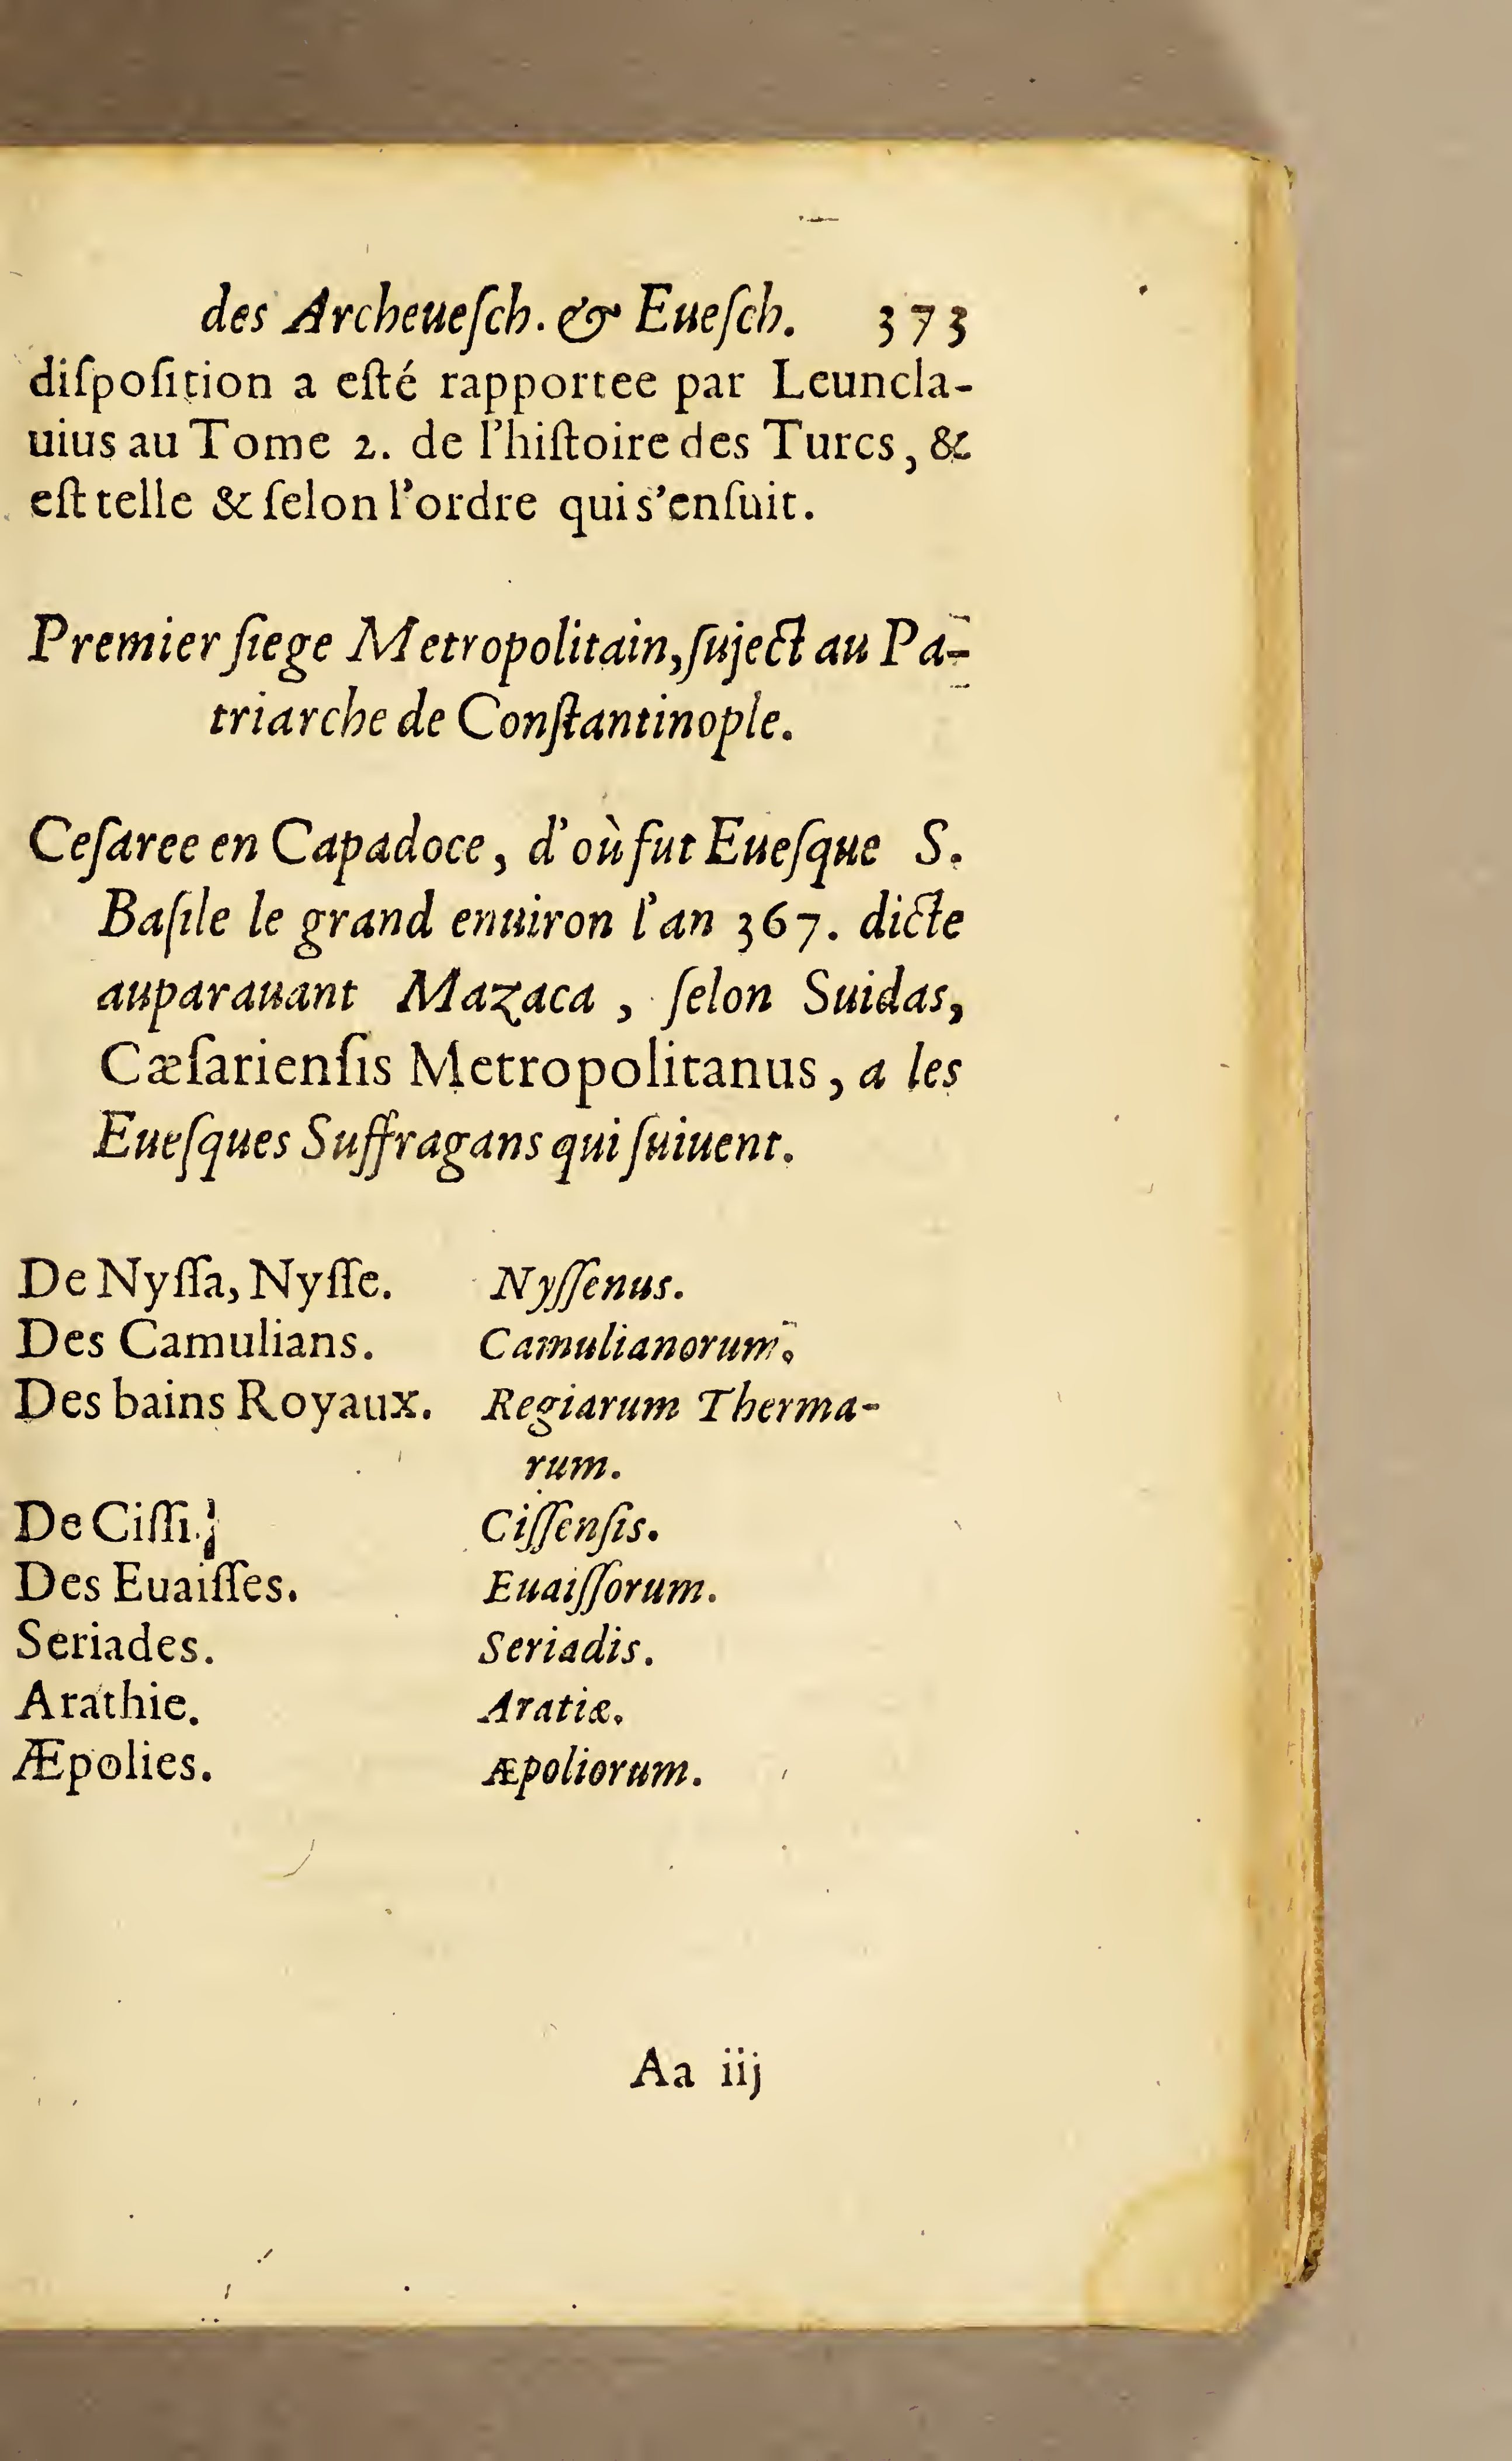 des Archeueſch. & Eueſch. 373
diſpoſition a eſté rapportee par Leuncla-
uius au Tome 2. de l'hiſtoire des Turcs, &
eſt telle & ſelon l'ordre qui s'enſuit.
Premier ſiege Metropolitain, ſuject au Pa-
triarche de Conſtantinople.
Ceſaree en Capadoce, d'où fut Eueſque S.
Baſile le grand enuiron l'an 367. dicte
auparauant Mazaca, ſelon Suidas,
Cæſarienſis Metropolitanus, a les
Eueſques Suffragans qui ſuiuent.
De Nyſſa, Nyſſe. Nyſſenus.
Des Camulians. Camulianorum.
Des bains Royaux. Regiarum Therma-
rum.
De Ciſſi. Ciſſenſis.
Des Euaiſſes. Euaiſſorum.
Seriades. Seriadis.
Arathie. Aratiæ.
Æpolies. Æpoliorum.
Aa iij